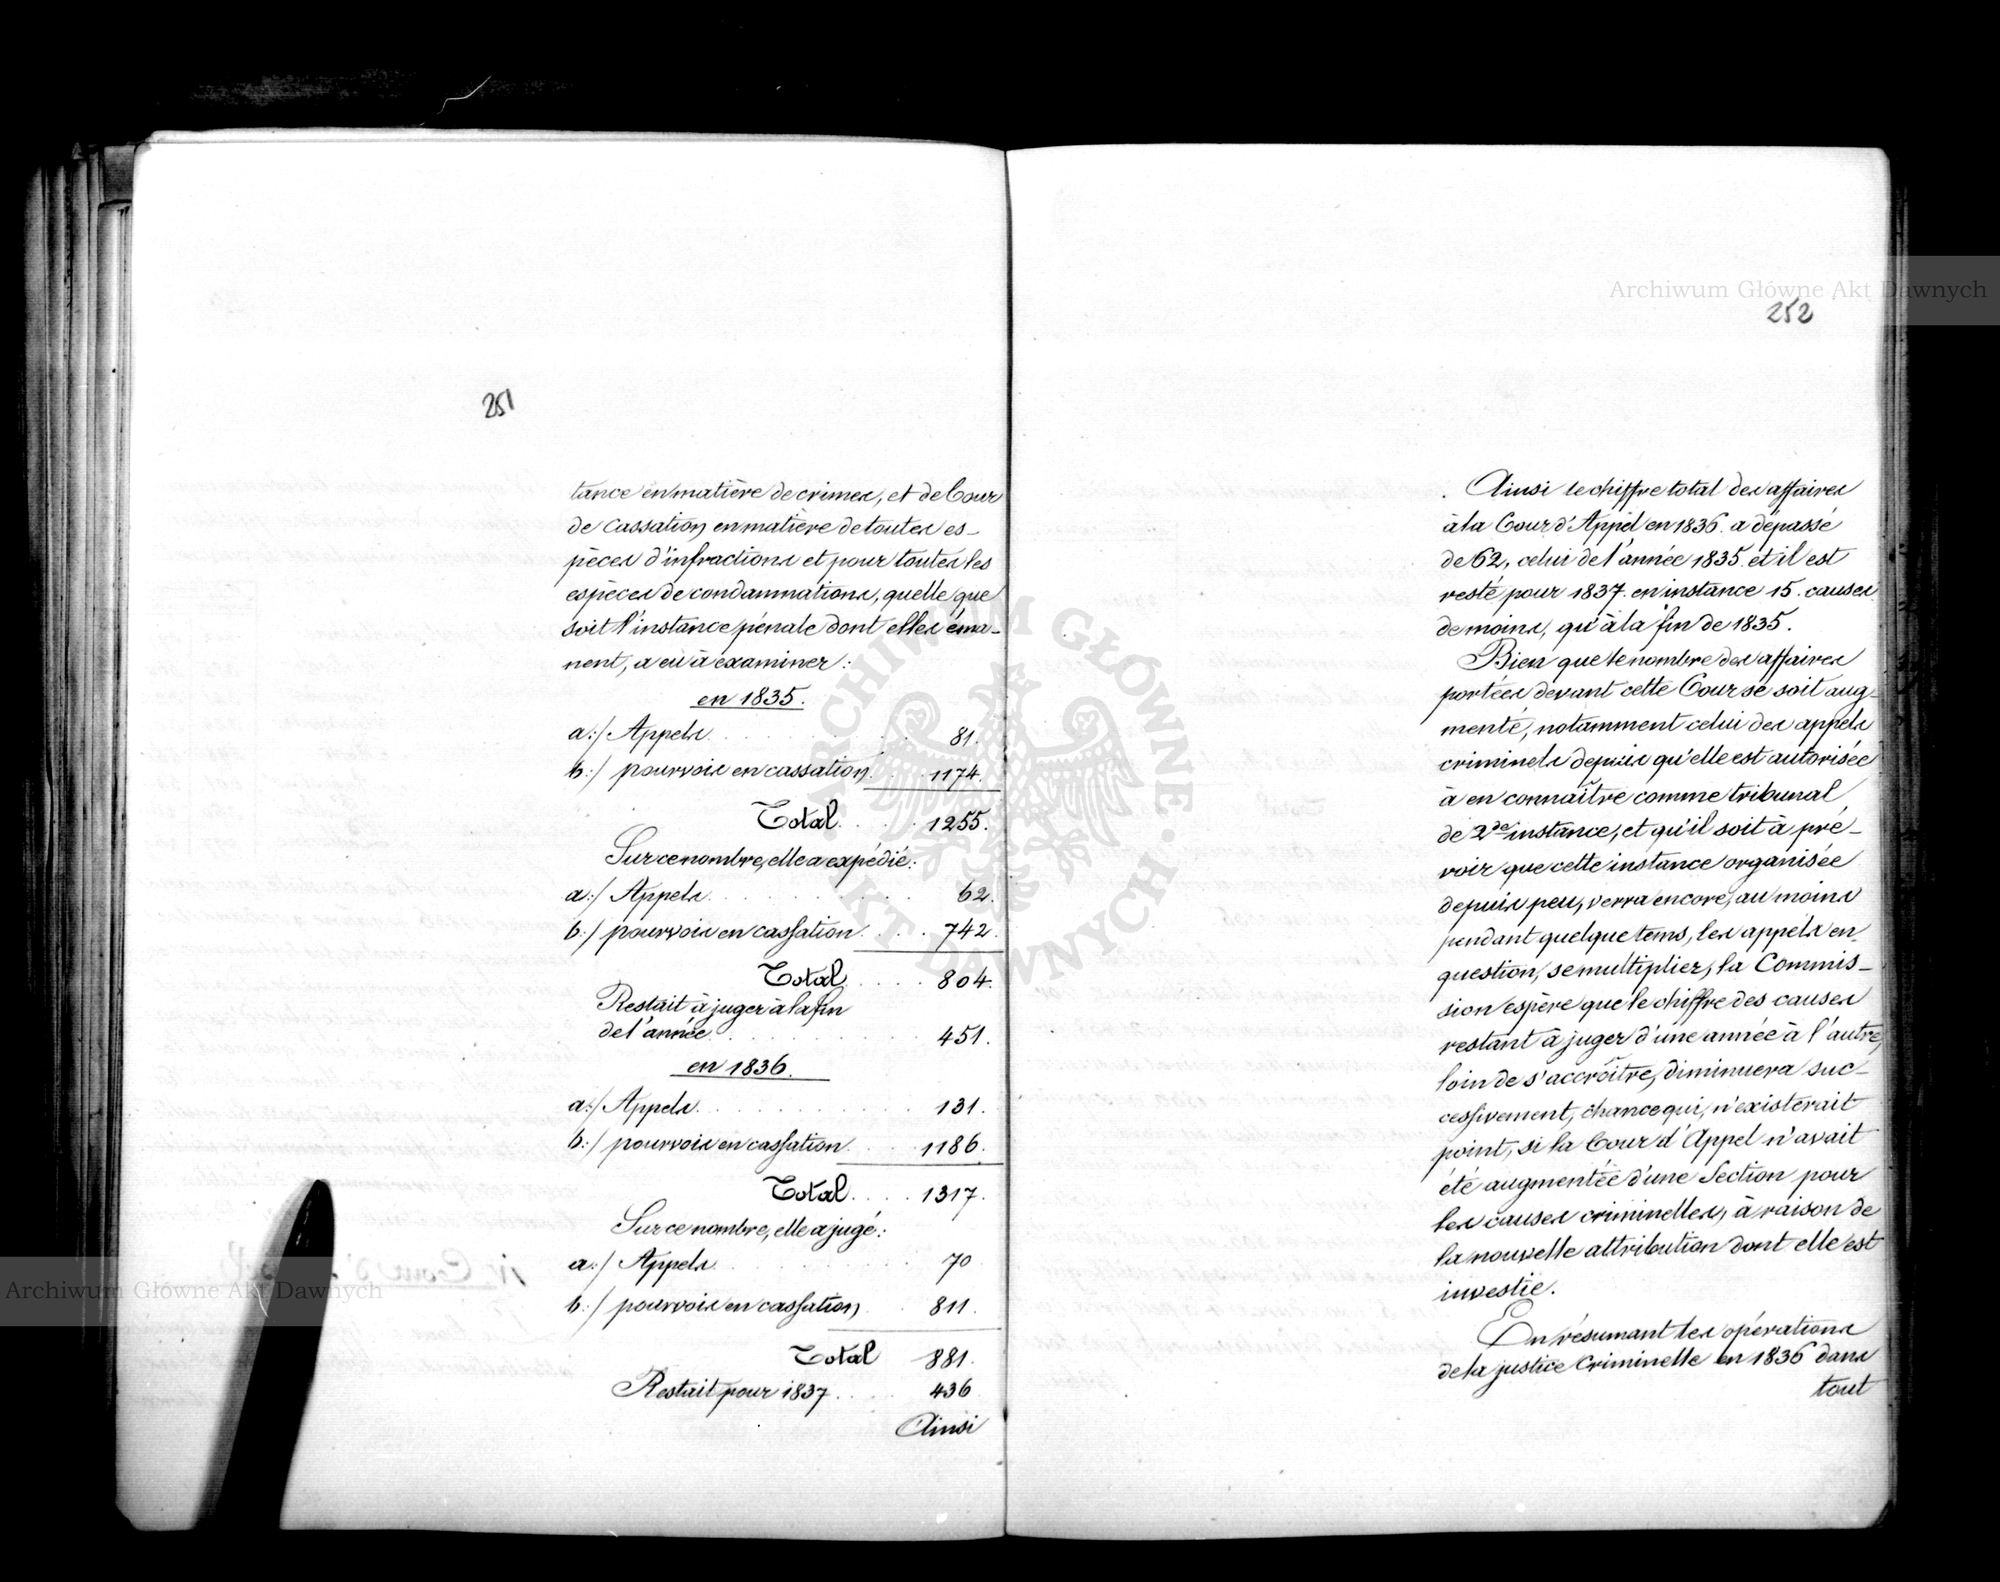 251
tance en matière de crimes, et de Cour
de Cassation en matière de toutes es-
pèces d'infractions et pour toutes les
espèces de condamnations, quelle que
soit l'instance pénale dont elles éma-
nent, a eu à examiner:
en 1835.
a:/ Appels. . . . . . . . 81.
b:/ pourvois en cassation. . . 1174.
Total. . . . 1255.
Sur ce nombre, elle a expédié:
a:/ Appels. . . . . . . . 62.
b:/ pourvois en cassation. . . 742.
Total. . . . 804.
Restait à juger à la fin
de l'année. . . . . . . 451.
en 1836.
a:/ Appels. . . . . . . . 131.
b:/ pourvois en cassation. . . 1186.
Total. . . . 1317.
Sur ce nombre, elle a jugé:
a:/ Appels. . . . . . . . 70
b:/ pourvois en cassation. . . 811.
Total 881.
Restait pour 1837. . . . 436
Ainsi
252
Ainsi le chiffre total des affaires
à la Cour d'Appel en 1836. a dépassé
de 62, celui de l'année 1835. et il est
resté pour 1837. en instance 15. causes
de moins, qu'à la fin de 1835.
Bien que le nombre des affaires
portées devant cette Cour se soit aug-
menté, notamment celui des appels
criminels depuis qu'elle est autorisée
à en connaître comme tribunal
de 2de instance, et qu'il soit à pré-
voir que cette instance organisée
depuis peu, verra encore, au moins
pendant quelque tems, les appels en
question, se multiplier, la Commis-
sion espère que le chiffre des causes
restant à juger d'une année à l'autre,
loin de s'accroître, diminuera suc-
cessivement, chance qui, n'existerait
point, si la Cour d'Appel n'avait
été augmentée d'une Section pour
les causes criminelles, à raison de
la nouvelle attribution dont elle est
investie.
En résumant les opérations
de la justice Criminelle en 1836 dans
tout
Archiwum Główne Akt Dawnych
Archiwum Główne Akt Dawnych
ARCHIWUM GŁÓWNE AKT DAWNYCH